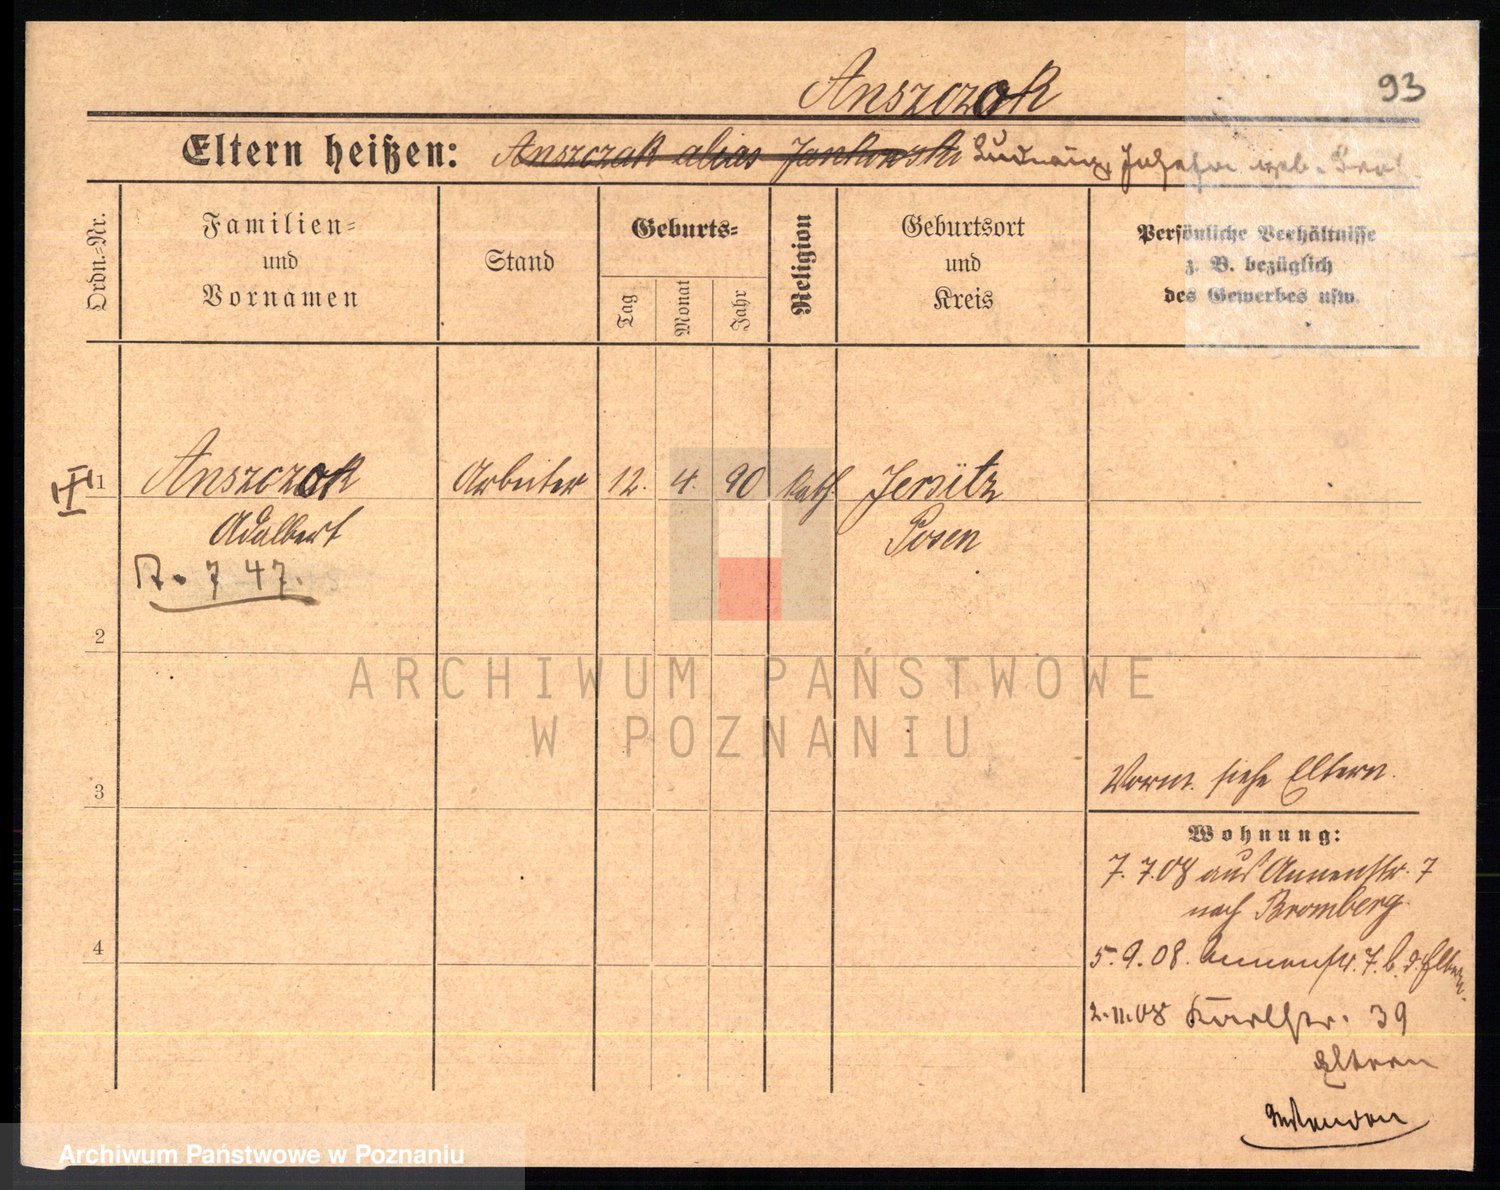 93
Anszczok
Eltern heißen: Anszczak alias Jankowski Ludwig, Josefa geb.
Ordn.-Nr.
Familien-
und
Vornamen
Stand
Geburts-
Tag
Monat
Jahr
Religion
Geburtsort
und
Kreis
Persönliche Verhältnisse
z. B. bezüglich
des Gewerbes usw.
1 Anszczok Arbeiter 12. 4. 90 kath. Jersitz
Adalbert Posen
747.
2
ARCHIWUM PAŃSTWOWE
W POZNANIU
3
Vorm. siehe Eltern.
Wohnung:
7.7.08 aus Annenstr. 7
nach Bromberg.
4
5.9.08. Annenstr. 7. b. d. Eltern.
2.11.08 Karlstr. 39
Eltern
Archiwum Państwowe w Poznaniu